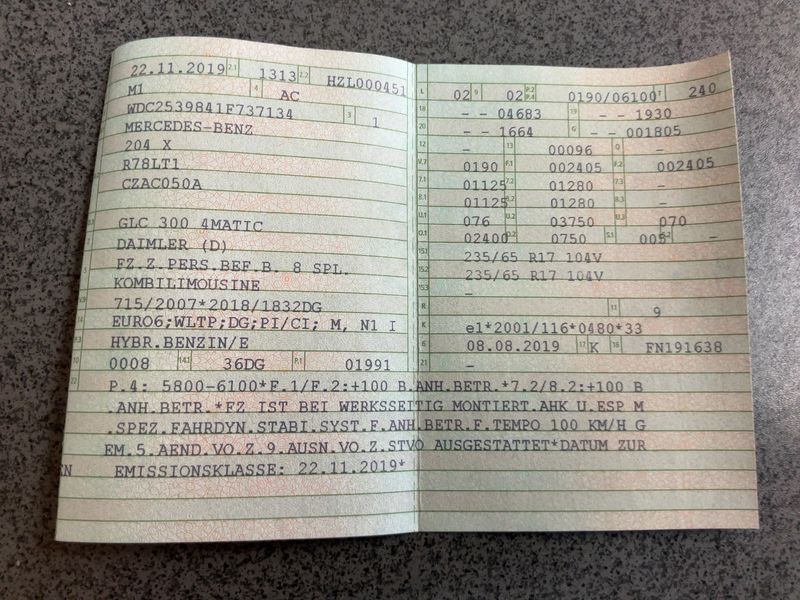 22.11.2019 2.1 1313 2.2 HZL000451
M1 4 AC
WDC2539841F737134 3 1
MERCEDES-BENZ
204 X
R78LT1
CZAC050A
GLC 300 4MATIC
DAIMLER (D)
FZ.Z.PERS.BEF.B. 8 SPL.
KOMBILIMOUSINE
715/2007*2018/1832DG
EURO6;WLTP;DG;PI/CI; M, N1 I
HYBR.BENZIN/E
0008 14.1 36DG P.1 01991
L 02 9 02 P.2 P.4 0190/06100 T 240
18 - - 04683 19 - - 1930
20 - - 1664 G - - 001805
12 - 13 00096 Q -
V.7 0190 F.1 002405 F.2 002405
7.1 01125 7.2 01280 7.3 -
8.1 01125 8.2 01280 8.3 -
U.1 076 U.2 03750 U.3 070
O.1 02400 O.2 0750 S.1 005 S.2 -
15.1 235/65 R17 104V
15.2 235/65 R17 104V
15.3 -
R 11 9
K e1*2001/116*0480*33
6 08.08.2019 17 K 16 FN191638
21 -
22 P.4: 5800-6100*F.1/F.2:+100 B.ANH.BETR.*7.2/8.2:+100 B
.ANH.BETR.*FZ IST BEI WERKSSEITIG MONTIERT.AHK U.ESP M
.SPEZ.FAHRDYN.STABI.SYST.F.ANH.BETR.F.TEMPO 100 KM/H G
EM.5.AEND.VO.Z.9.AUSN.VO.Z.STVO AUSGESTATTET*DATUM ZUR
EMISSIONSKLASSE: 22.11.2019*